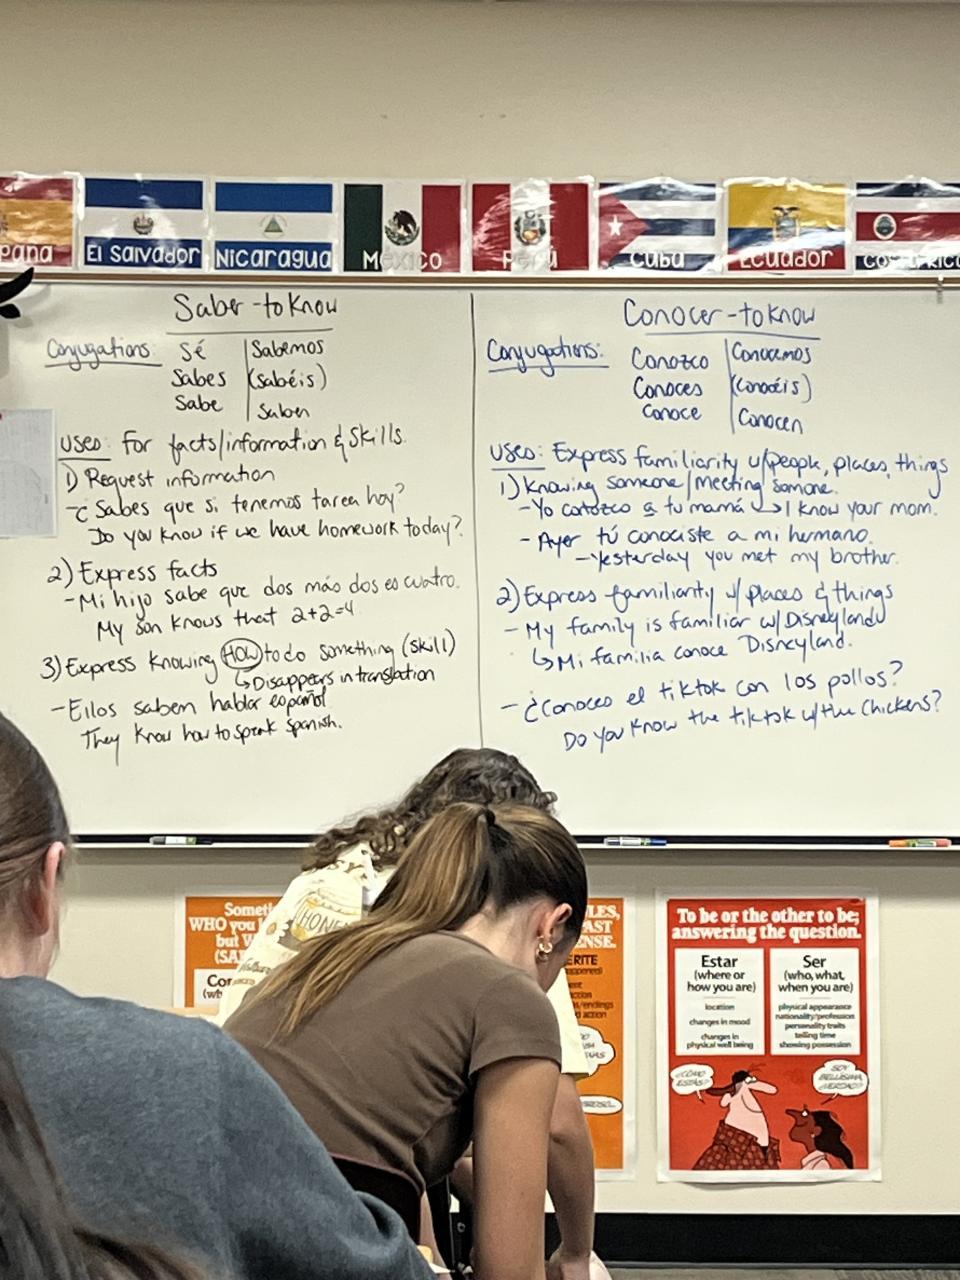 El Salvador
Nicaragua
México
Perú
Cuba
Ecuador
Saber - to know
Conjugations:
Sé
Sabemos
Sabes
(Sabéis)
Sabe
Saben
Uses: For facts/information & Skills.
1) Request information
-¿Sabes que si tenemos tarea hoy?
Do you know if we have homework today?
2) Express facts
- Mi hijo sabe que dos más dos es cuatro.
My son knows that 2+2=4.
3) Express knowing HOW to do something (skill)
↳ Disappears in translation
- Ellos saben hablar español
They know how to speak Spanish.
Conocer - to know
Conjugations:
Conozco
Conocemos
Conoces
(Conocéis)
Conoce
Conocen
Uses: Express familiarity w/people, places, things
1) Knowing someone/meeting somone.
- Yo conozco a tu mamá ↳ I know your mom.
- Ayer tú conociste a mi hermano.
- Yesterday you met my brother.
2) Express familiarity w/ places & things
- My family is familiar w/ Disneyland
↳ Mi familia conoce Disneyland.
- ¿Conoces el tiktok con los pollos?
Do you know the tiktok w/the Chickens?
WHO you
but
HONE
To be or the other to be;
answering the question.
Estar
(where or
how you are)
location
changes in mood
changes in
physical well being
Ser
(who, what,
when you are)
physical appearance
nationality/profession
personality traits
telling time
showing possession
¿CÓMO
ESTÁS?
SOY
BELLÍSIMA,
¿VERDAD?